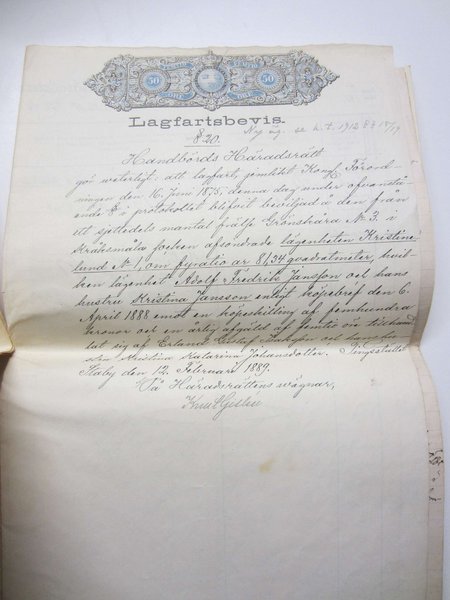 50 50
Lagfartsbevis.
§ 20. Ny äg. se 1912
Handbörds Häradsrätt
gör veterligt: att lagfart, jemlikt Kongl. Förord-
ningen den 16 Juni 1875, denna dag under ofvanstå-
ende § i protokollet blifvit beviljad å den från
ett sjettedels mantal frälse Grönskåra No 3. i
Kråksmåla socken afsöndrade lägenheten Kristine-
lund No 1, om fyratio ar 81,34 qvadratmeter, hvil-
ken lägenhet Adolf Fredrik Jansson och hans
hustru Kristina Jansson enligt köpebref den 6
April 1888 emot en köpeskilling af femhundra
kronor och en årlig afgäld af femtio öre tillhand-
lat sig af Erland Gustaf och hans hu-
stru Kristina Katarina Johansdotter. Tingsstället
Staby den 12. Februari 1889.
På Häradsrättens vägnar,
Knut